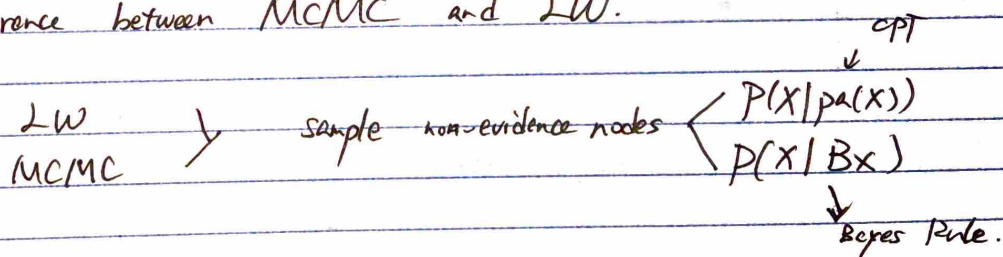 rence between MCMC and LW.
CPT
LW
MCMC
sample non-evidence nodes
P(X|pa(X))
P(X|Bx)
Bayes Rule.